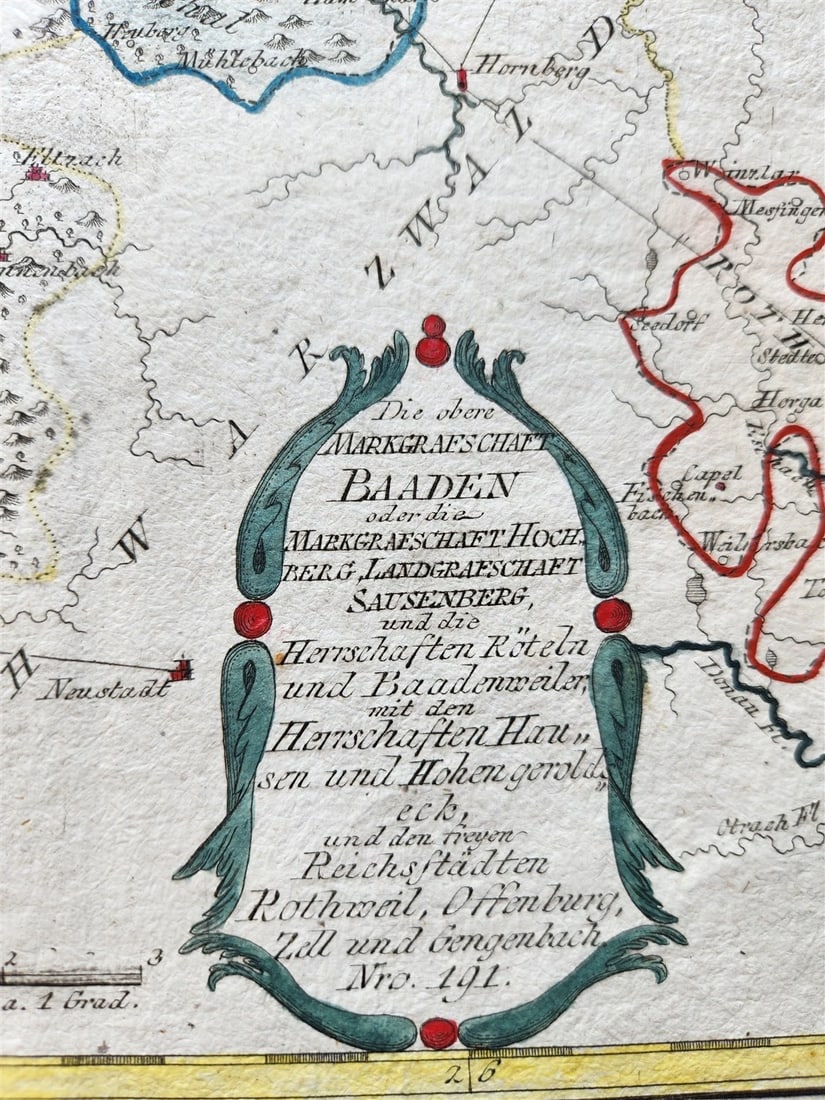 Heuberg
Mühlebach
Hornberg
Eltzach
Winzlar
Mesfinger
ROTH
Seedorf
Stedte
Horga
Capel
Fischen„
bach
Neustadt
Donau Fl.
Otrach Fl
SCHWARZWALD
Die obere
MARKGRAFSCHAFT
BAADEN
oder die
MARKGRAFSCHAFT HOCH„
BERG, LANDGRAFSCHAFT
SAUSENBERG,
und die
Herrschaften Röteln
und Baadenweiler,
mit den
Herrschaften Hau„
sen und Hohengerolds„
eck,
und den freyen
Reichsstädten
Rothweil, Offenburg,
Zell und Gengenbach.
Nro. 191.
2 3
a. 1 Grad.
26